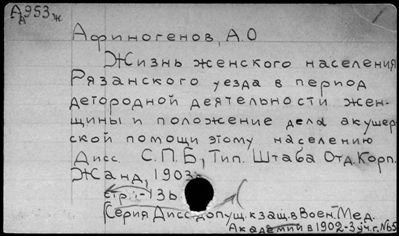 А953ж
Афиногенов, А.О
Жизнь женского населения
Рязанского уезда в период
детородной деятельности жен-
щины и положение дела акушер-
ской помощи этому населению
Дисс. С.П.Б, Тип. Штаба Отд.Корп.
Жанд, 1903г
стр.
(Серия Дисс. допущ.к защ.в Воен.Мед.
Академии в 1902-3 уч.г. №65